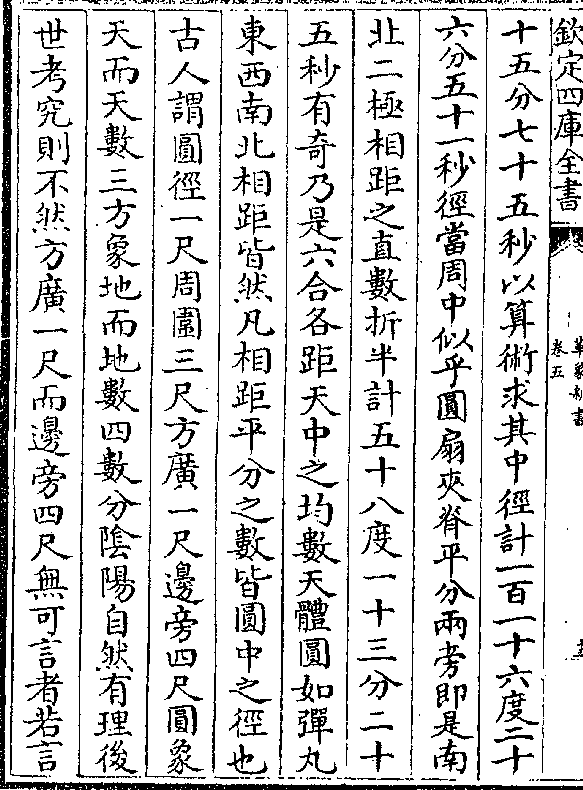 欽定四庫全書
革象新書
卷五
十五分七十五秒以算術求其中徑計一百一十六度二十
六分五十一秒徑當周中似乎圓扇夾脊平分兩旁即是南
北二極相距之直數折半計五十八度一十三分二十
五秒有奇乃是六合各距天中之均數天體圓如彈丸
東西南北相距皆然凡相距平分之數皆圓中之徑也
古人謂圓徑一尺周圍三尺方廣一尺邊旁四尺圓象
天而天數三方象地而地數四數分陰陽自然有理後
世考究則不然方廣一尺而邊旁四尺無可言者若言